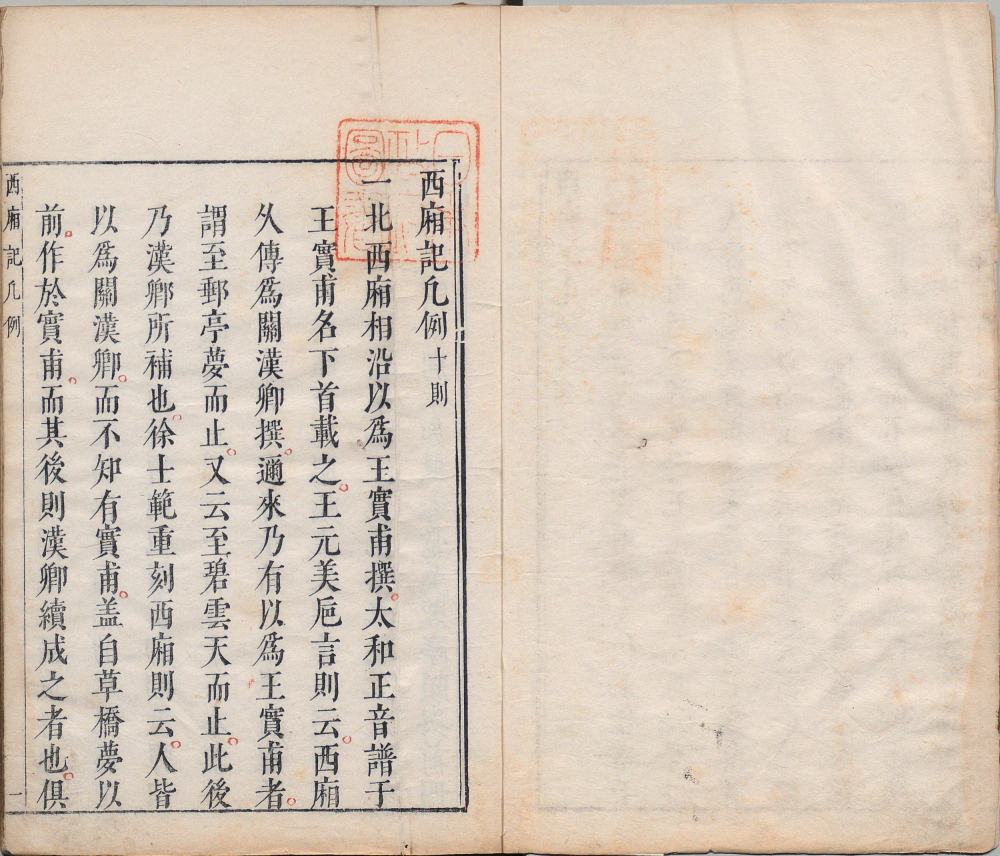 西廂記凡例十則
一北西廂相沿以爲王實甫撰太和正音譜于
王實甫名下首載之王元美巵言則云西廂
久傳爲關漢卿撰邇來乃有以爲王實甫者
謂至郵亭夢而止又云至碧雲天而止此後
乃漢卿所補也徐士範重刻西廂則云人皆
以爲關漢卿而不知有實甫盖自草橋夢以
前作於實甫而其後則漢卿續成之者也俱
西廂記凡例
一